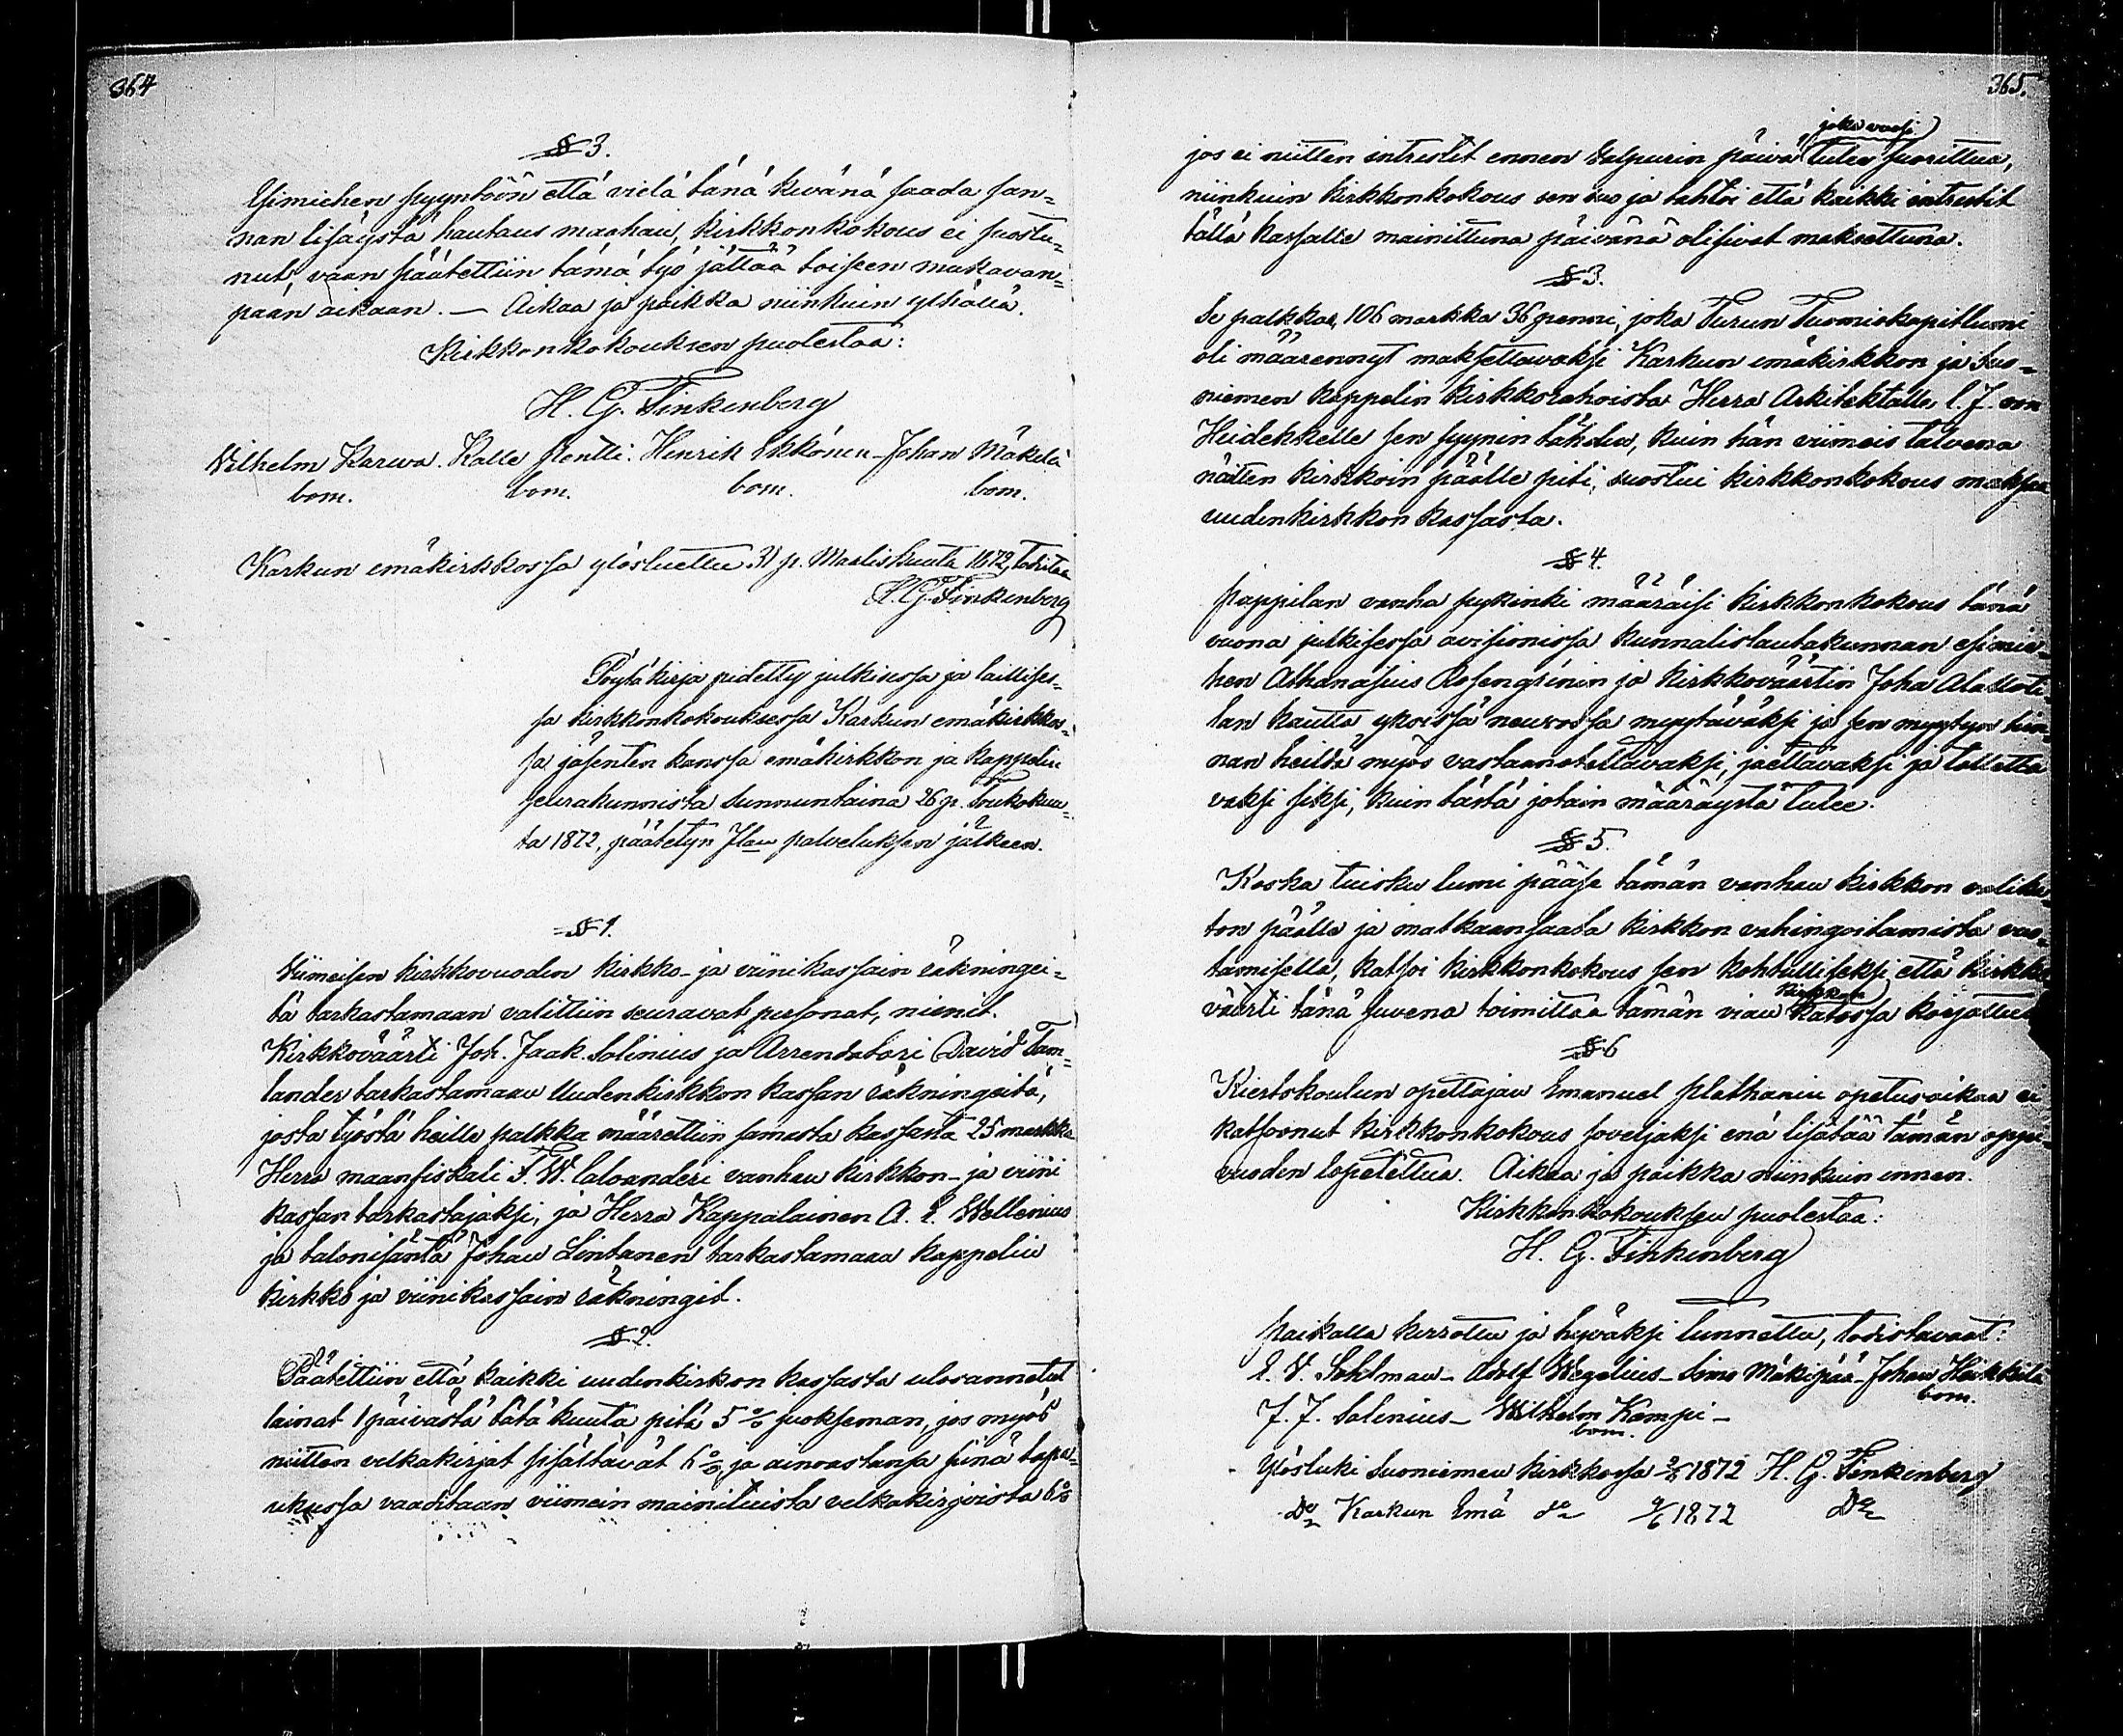 364
§ 3.
Esimiehen pyyntöön että vielä tänä kevänä saada san=
nan lisäystä hautaus maahan, kirkkonkokous ei suostu=
nut, vaan päätettiin tämä työ jättää toiseen mukavan=
pään aikaan. — Aikaa ja paikka niinkuin ylhällä.
Kirkkonkokouksen puolestaa:
H. G. Finkenberg
Vilhelm Karwa. Kalle Pentti. Henrik Ekkönen - Johan Mäkelä
bom. bom. bom. bom.
Karkun emäkirkkossa ylösluettu 31 p. Maaliskuuta 1872, todistaa
H. G. Finkenberg
Pöytäkirja pidetty julkisessa ja laillises=
sa kirkkonkokouksessa Karkun emäkirkkos=
sa jäsenten kanssa emäkirkkon ja kappelin
seurakunnista sunnuntaina 26 p. Toukokuu=
ta 1872, päätetyn Jlan palveluksen jälkeen.
§ 1.
Viimeisen kirkkovuoden kirkko- ja viinikassain räkningei=
tä tarkastamaan valittiin seuravat personat, nienit.
Kirkkoväärti Joh. Jaak. Salinius ja Arrendatori David Tam=
lander tarkastamaan Uudenkirkkon kassan räkningeitä,
josta työstä heille palkka määrettiin samasta kassasta 25 markka
Herra maanfiskali F. W. Caloanderi vanhan kirkkon- ja viini
kassan tarkastajaksi, ja Herra Kappalainen A. E. Wellenius
ja talonisäntä Johan Lintanen tarkastamaan kappelin
kirkko ja viinikassain räkningit.
§ 2.
Päätettiin että kaikki uudenkirkon kassasta ulosannetut
lainat 1 päivästä tätä kuuta pitä 5 % juokseman, jos myös
niitten velkakirjat sisältävät 6 % ja ainoastansa siinä tapa=
uksessa vaaditaan viimein mainituista velkakirjoista 6 %
365.
joka vuosi
jos ei niitten intrestit ennen Valpurin päivä tulee suorittua,
niinkuin kirkkonkokous sen suo ja tahtoi että kaikki intrestit
tällä kassalle mainittuna päivänä olisivat maksettuna.
§ 3.
Se palkka, 106 markka 36 penni, joka Turun Tuomiokapitlumi
oli määrennyt maksettavaksi Karkun emäkirkkon ja Suo=
niemen kappelin kirkkorahoista Herra Arkitektalle C. J. von
Heidekkelle sen syynin tähden, kuin hän viimeis talvena
näitten kirkkoin päälle piti, suostui kirkkonkokous maksaa
uudenkirkkon kassasta.
§ 4.
Pappilan vanha pykinki määräisi kirkkonkokous tänä
vuona julkisessa avisionissa kunnalislautakunnan esimie=
hen Athanasius Rosengrénin ja kirkkoväärtin Joha
lan kautta ykoissä neuvossa myytäväksi ja sen myytyn hin=
nan heildä myös vastaanotettavaksi, jaettavaksi ja talletta
vaksi siksi, kuin tästä jotain määräystä tulee.
§ 5.
Koska tuisku lumi pääse tämän vanhan kirkkon
ton päälle ja matkaansaata kirkkon vahingoitamista
tamisella, katsoi kirkkonkokous sen kohtulliseksi että kirkko
kirkkon
väärti tänä suvena toimittaa tämän vian katossa korjattua
§ 6
Kiertokoulun opettajan Emanuel Plathanin opetusaikaa ei
katsonut kirkkonkokous soveljaksi enä lisätää tämän oppi=
vuoden lopetettua. Aikaa ja paikka niinkuin ennen.
Kirkkonkokouksen puolestaa:
H. G. Finkenberg
Paikalla kerrottu ja hyväksi tunnettu, todistavaat:
E. V. Sohlman - Adolf Wegelius - Simo Mäkipää - Johan Heikkilä
bom.
J. J. Salenius - Wilhelm Kämpi -
bom.
Ylösluki Suoniemen kirkkossa 2/6 1872 H. G. Finkenberg
Do Karkun Emä do 9/6 1872 Do